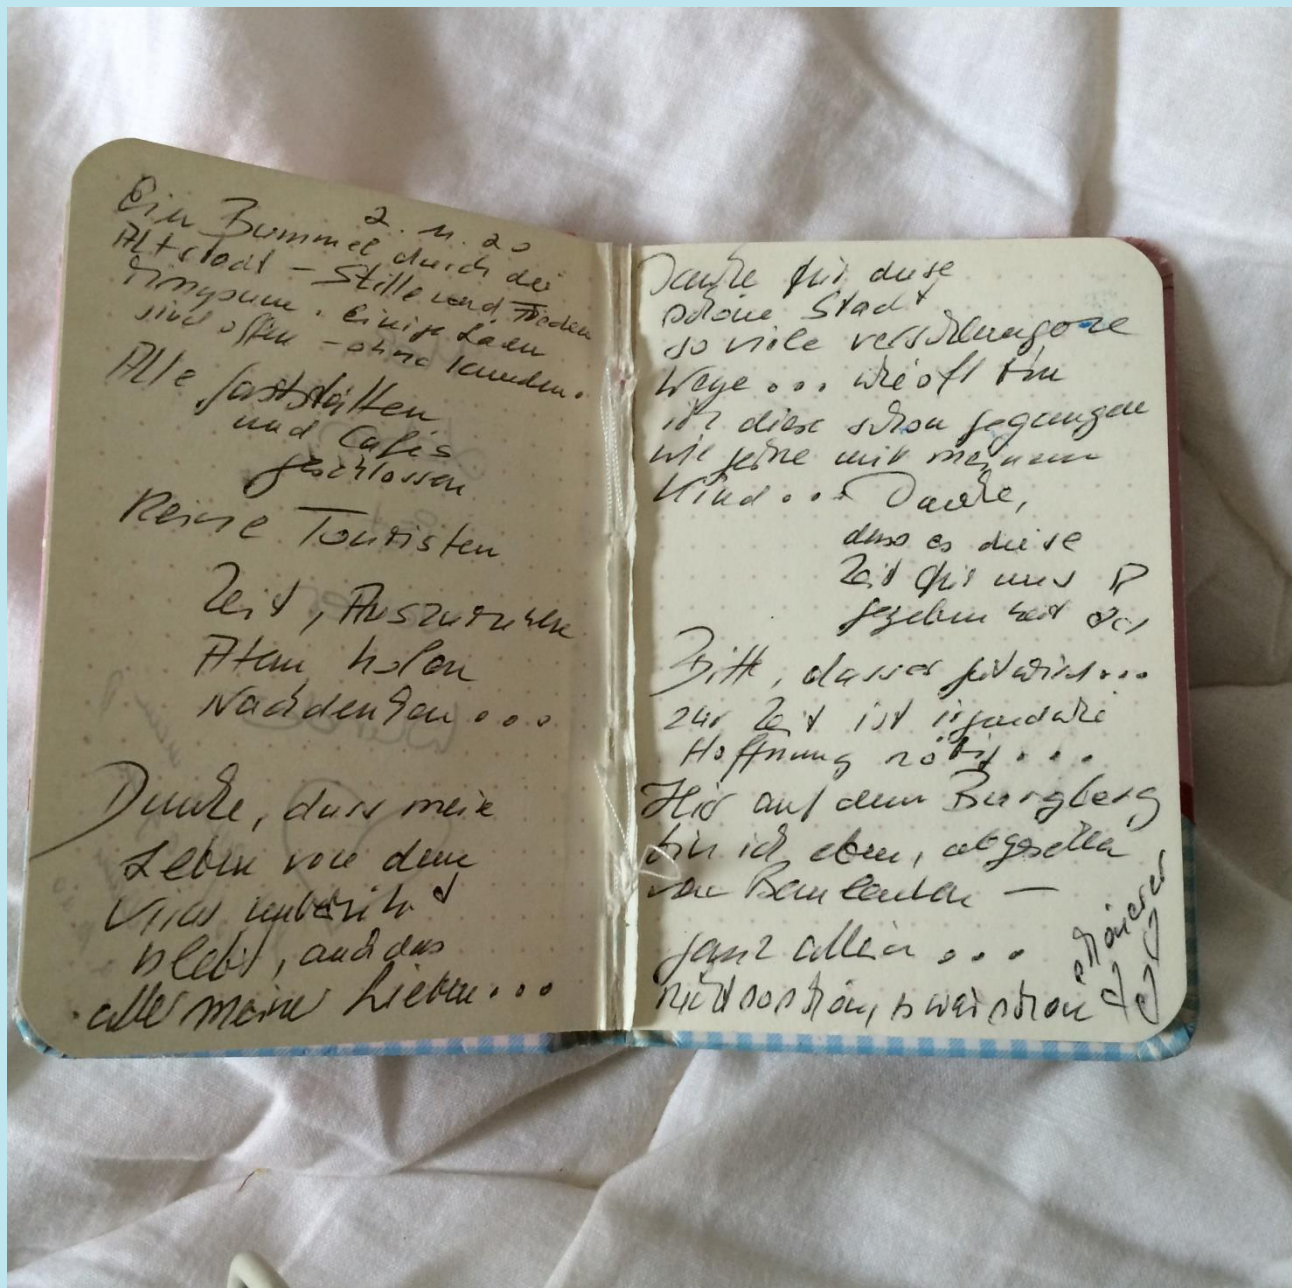 2. 11. 20
Ein Bummel durch die
Altstadt – Stille und Frieden
ringsum. Einige Läden
sind offen – ohne Kunden.
Alle Gaststätten
und Cafés
geschlossen
Keine Touristen
Zeit, Auszuruhen
Atem holen
Nachdenken...
Danke, dass mein
Leben von dem
Virus unberührt
bleibt, auch das
aller meiner Lieben...
Danke für diese
schöne Stadt
so viele verschlungene
Wege... wie oft bin
ich diese schon gegangen
wie gerne mit meinem
Kind... Danke,
dass es diese
Zeit für uns
gegeben hat
Bitte, dass es gut wird...
zur Zeit ist irgendwie
Hoffnung nötig...
Hier auf dem Burgberg
bin ich eben, abgesehen
von Bauleuten –
ganz allein...
nicht so schön, s war schon
schöner